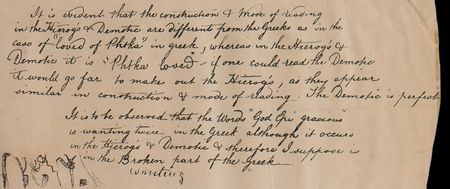 It is evident that the construction & Mode of reading
in the Hierog's & Demotic are different from the Greeks as in the
case of "loved of Phtha" in greek, whereas in the Hierog's &
Demotic it is "Phtha loved" - if one could read the Demotic
it would go far to make out the Hierog's, as they appear
similar in construction & mode of reading. The Demotic is perfect
It is to be observed that the Words "God Epi gracious
is wanting twice in the Greek although it occurs
in the Hierog's & Demotic & therefore I suppose is
in the Broken part of the Greek
wanting